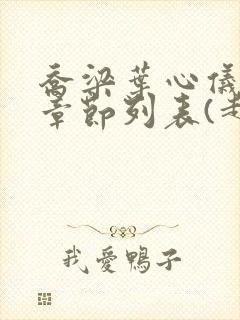 乔梁葉心儀
章節列表(
我愛鴨子